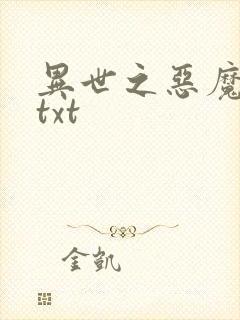 異世之惡魔
txt
金凱